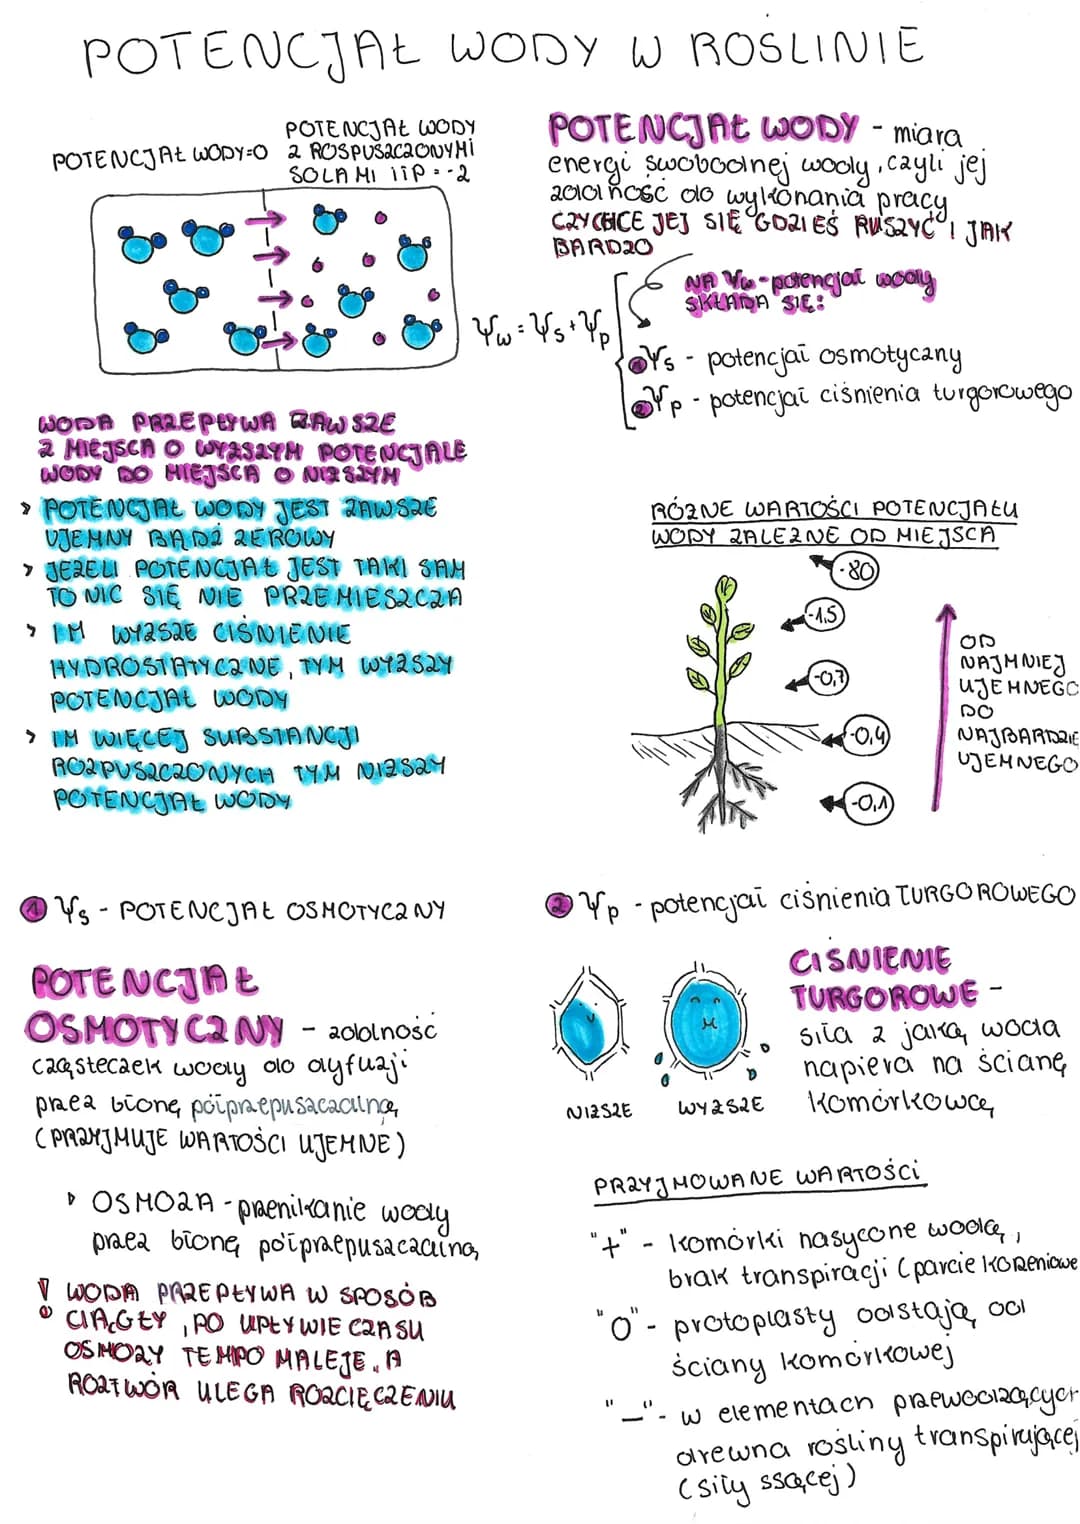 POTENCJAŁ WODY W ROŚLINIE
POTENCJAŁ WODY=0
POTENCJAŁ WODY
Z ROSPUSZCZONYMI
SOLAMI ITP = -2
POTENCJAŁ WODY - miara
energi swobodnej wody, czyli jej
zdolność do wykonania pracy
CZY CHCE JEJ SIĘ GDZIEŚ RUSZYĆ I JAK
BARDZO
NA Ψw - potencjał wody
SKŁADA SIĘ:
Ψw = Ψs + Ψp
1 Ψs - potencjał osmotyczany
2 Ψp - potencjał ciśnienia turgorowego
WODA PRZEPŁYWA ZAWSZE
Z MIEJSCA O WYŻSZYM POTENCJALE
WODY DO MIEJSCA O NIŻSZYM
> POTENCJAŁ WODY JEST ZAWSZE
UJEMNY BĄDŹ ZEROWY
> JEŻELI POTENCJAŁ JEST TAKI SAM
TO NIC SIĘ NIE PRZEMIESZCZA
> IM WYŻSZE CIŚNIENIE
HYDROSTATYCZNE, TYM WYŻSZY
POTENCJAŁ WODY
> IM WIĘCEJ SUBSTANCJI
ROZPUSZCZONYCH TYM NIŻSZY
POTENCJAŁ WODY
RÓŻNE WARTOŚCI POTENCJAŁU
WODY ZALEŻNE OD MIEJSCA
-80
-1,5
-0,7
-0,4
-0,1
OD
NAJMNIEJ
UJEMNEGO
DO
NAJBARDZIE
UJEMNEGO
1 Ψs - POTENCJAŁ OSMOTYCZNY
POTENCJAŁ
OSMOTYCZNY - zdolność
cząsteczek wody do dyfuzji
przez błonę półprzepuszczalną
(PRZYJMUJE WARTOŚCI UJEMNE)
OSMOZA - przenikanie wody
przez błonę półprzepuszczalną
! WODA PRZEPŁYWA W SPOSÓB
CIĄGŁY, PO UPŁYWIE CZASU
OSMOZY TEMPO MALEJE, A
ROZTWÓR ULEGA ROZCIĘCZENIU
2 Ψp - potencjał ciśnienia TURGOROWEGO
NIŻSZE
WYŻSZE
CIŚNIENIE
TURGOROWE -
siła z jaką woda
napiera na ścianę
komórkową
PRZYJMOWANE WARTOŚCI
"+" - komórki nasycone wodą,
brak transpiracji (parcie korzeniowe
"0" - protoplasty odstają od
ściany komórkowej
"-" - w elementach przewodzących
drewna rośliny transpirującej
(siły ssącej)